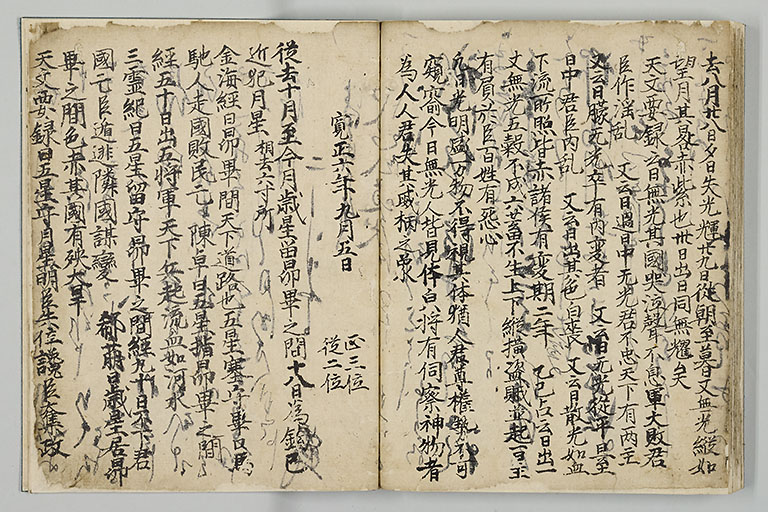 去八月廿八日夕日失光輝廿九日従朝至暮又無光縦如
望月其晷赤紫也卅日出日同無耀矣
天文要録云日無光其国哭泣聲不息軍大敗君
臣作淫乱 又云日過日中无光君不忠天下有両主
又云日朦无光卒有内変者 又云日无光従平旦至
日中君臣内乱 又云日出其色白喪 又云日散光如血
下流所照皆赤諸侯有変期二年 乙巳占云日出一
丈無光五穀不成六畜不生上下縦横盗賊並起一曰主
有負於臣百姓有怨心
日光明盛万物不得視其体猶人君其権勢不可
窺窬今日無光人皆見体白将有伺察神物者
為人人君失其威柄之象
寛正六年九月五日
正三位
従二位
従去十月至今月歳星留昴畢之間十八日為
近犯月星 相去六寸所
金海経曰昴畢間天下道路也五星塞守畢口馬
馳人走国敗民亡 陳卓曰五星指昴畢之間
経五十日出五将軍天下兵起流血如河水
三霊紀曰五星留守昴畢之間経九十日天下君
国亡臣遁逃隣国謀変 郗萌曰歳星居昴
畢之間色赤其国有殃大旱
天文要録曰五星守月星明臣失位讒臣奪政